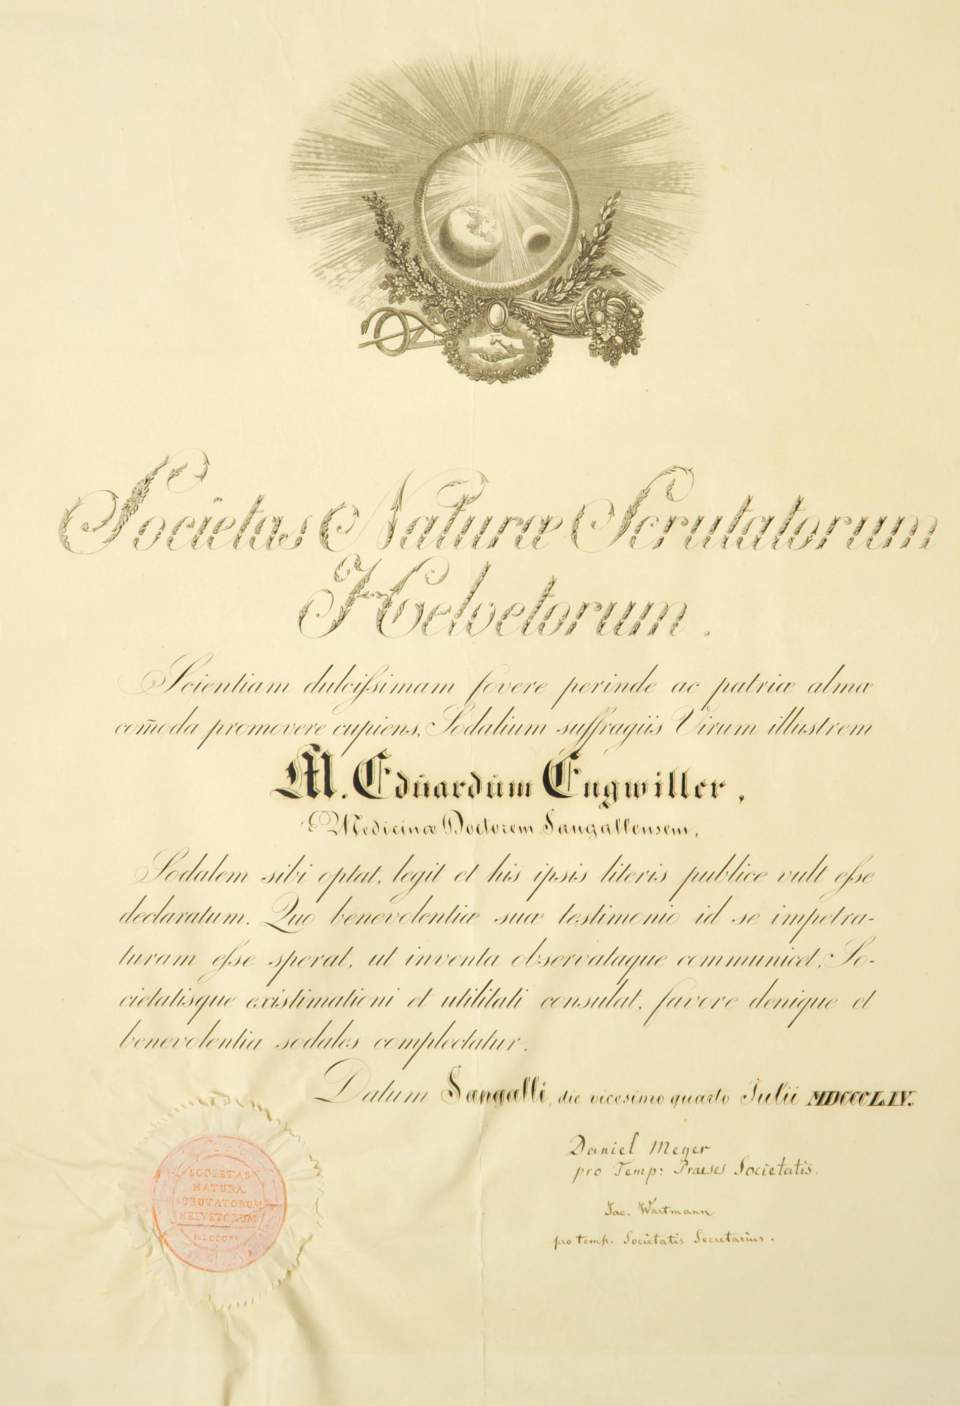 Societas Naturæ Scrutatorum
Helvetorum.
Scientiam dulcissimam fovere perinde ac patriæ almæ
com̄oda promovere cupiens, Sodalium suffragiis Virum illustrem
M. Eduardum Engwiller,
Medicinæ Doctorem Sangallensem,
Sodalem sibi optat, legit et his ipsis literis publice vult esse
declaratum. Quo benevolentiæ suæ testimonio id se impetra-
turam esse sperat, ut inventa observataque communicet, So-
cietatisque existimationi et utilitati consulat, favore denique et
benevolentia sodales complectatur.
Datum Sangalli, die vicesimo quarto Julii MDCCCLIV.
Daniel Meyer
pro Temp: Praeses Societatis.
Jac. Wartmann
pro temp. Societatis Secretarius.
SOCIETAS
NATURÆ
SCRUTATORUM
HELVETORUM